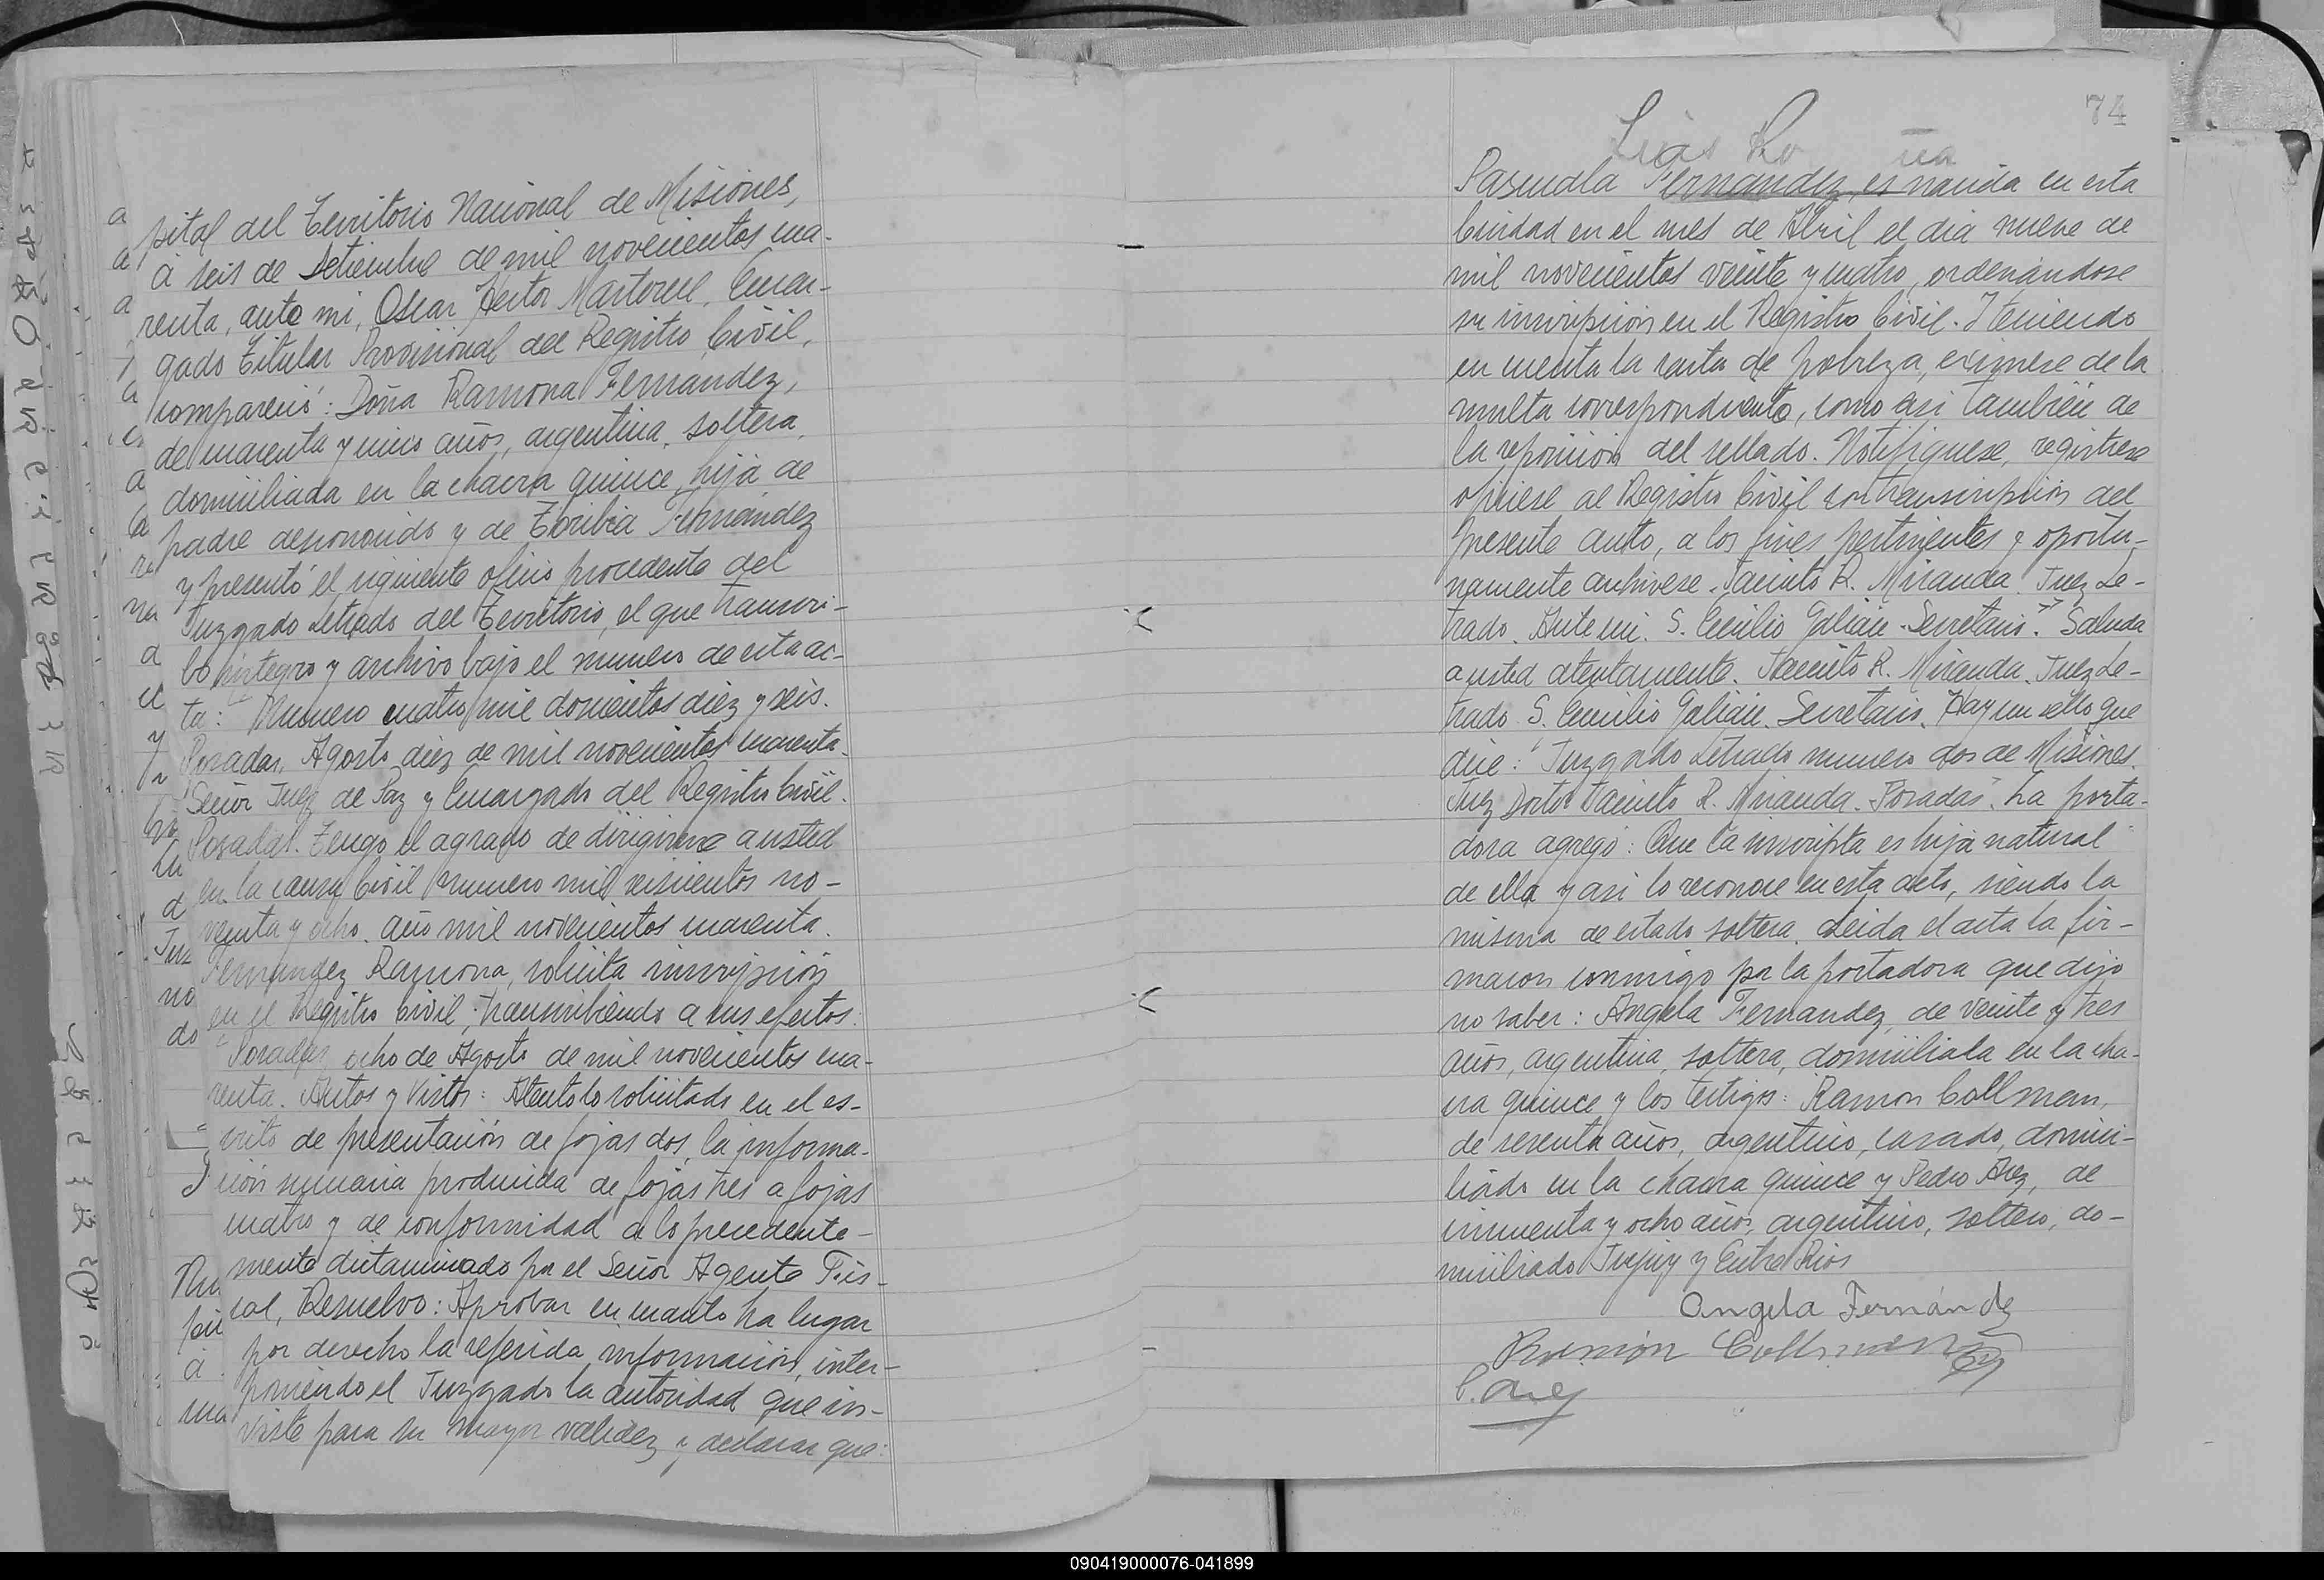 pital del Territorio Nacional de Misiones,
a seis de Setiembre de mil novecientos cua-
renta, ante mi, Oscar Hector Martorell, Encar-
gado Titular Provisional del Registro Civil,
compareció: Doña Ramona Fernandez,
de cuarenta y cinco años, argentina, soltera,
domiciliada en la chacra quince, hija de
padre desconocido y de Toribia Fernandez
y presentó el siguiente oficio procedente del
Juzgado Letrado del Territorio, el que transcri-
bo integro y archivo bajo el numero de esta ac-
ta: "Numero cuatro mil doscientos diez y seis.
Posadas, Agosto diez de mil novecientos cuarenta.
Señor Juez de Paz y Encargado del Registro Civil.
Posadas. Tengo el agrado de dirigirme a usted
en la causa Civil numero mil seiscientos no-
venta y ocho. año mil novecientos cuarenta.
Fernandez Ramona, solicita inscripción
en el Registro Civil, transcribiendo a sus efectos:
"Posadas, ocho de Agosto de mil novecientos cua-
renta. Autos y Vistos: Atento lo solicitado en el es-
crito de presentación de fojas dos, la informa-
ción sumaria producida de fojas tres a fojas
cuatro y de conformidad a lo precedente-
mente dictaminado por el Señor Agente Fis-
cal, Resuelvo: Aprobar en cuanto ha lugar
por derecho la referida información, inter-
poniendo el Juzgado la autoridad que in-
viste para su mayor validez y declarar que:
74
Pascuala Fernandez, es nacida en esta
Ciudad en el mes de Abril el dia nueve de
mil novecientos veinte y cuatro, ordenándose
su inscripción en el Registro Civil. Y teniendo
en cuenta la carta de pobreza, eximese de la
multa correspondiente, como asi también de
la reposición del sellado. Notifiquese, registrese
oficiese al Registro Civil con transcripción del
presente auto, a los fines pertinentes y oportu-
namente archivese. Jacinto R. Miranda. Juez Le-
trado. Ante mi. S. Cecilio Galian. Secretario." Saluda
a usted atentamente. Jacinto R. Miranda. Juez Le-
trado. S. Cecilio Galian. Secretario. Hay un sello que
dice: "Juzgado Letrado numero dos de Misiones.
Juez Doctor Jacinto R. Miranda. Posadas". La porta-
dora agregó: Que la inscripta es hija natural
de ella y asi lo reconoce en esta acto, siendo la
misma de estado soltera. Leida el acta la fir-
maron conmigo por la portadora que dijo
no saber: Angela Fernandez, de veinte y tres
años, argentina, soltera, domiciliada en la cha-
cra quince y los testigos: Ramon Collman,
de sesenta años, argentino, casado, domici-
liado en la chacra quince y Pedro Arez, de
cincuenta y ocho años, argentino, soltero, do-
miciliado Jujuy y Entre Rios
Angela Fernández
Ramón Collman
P. Arez
090419000076-041899